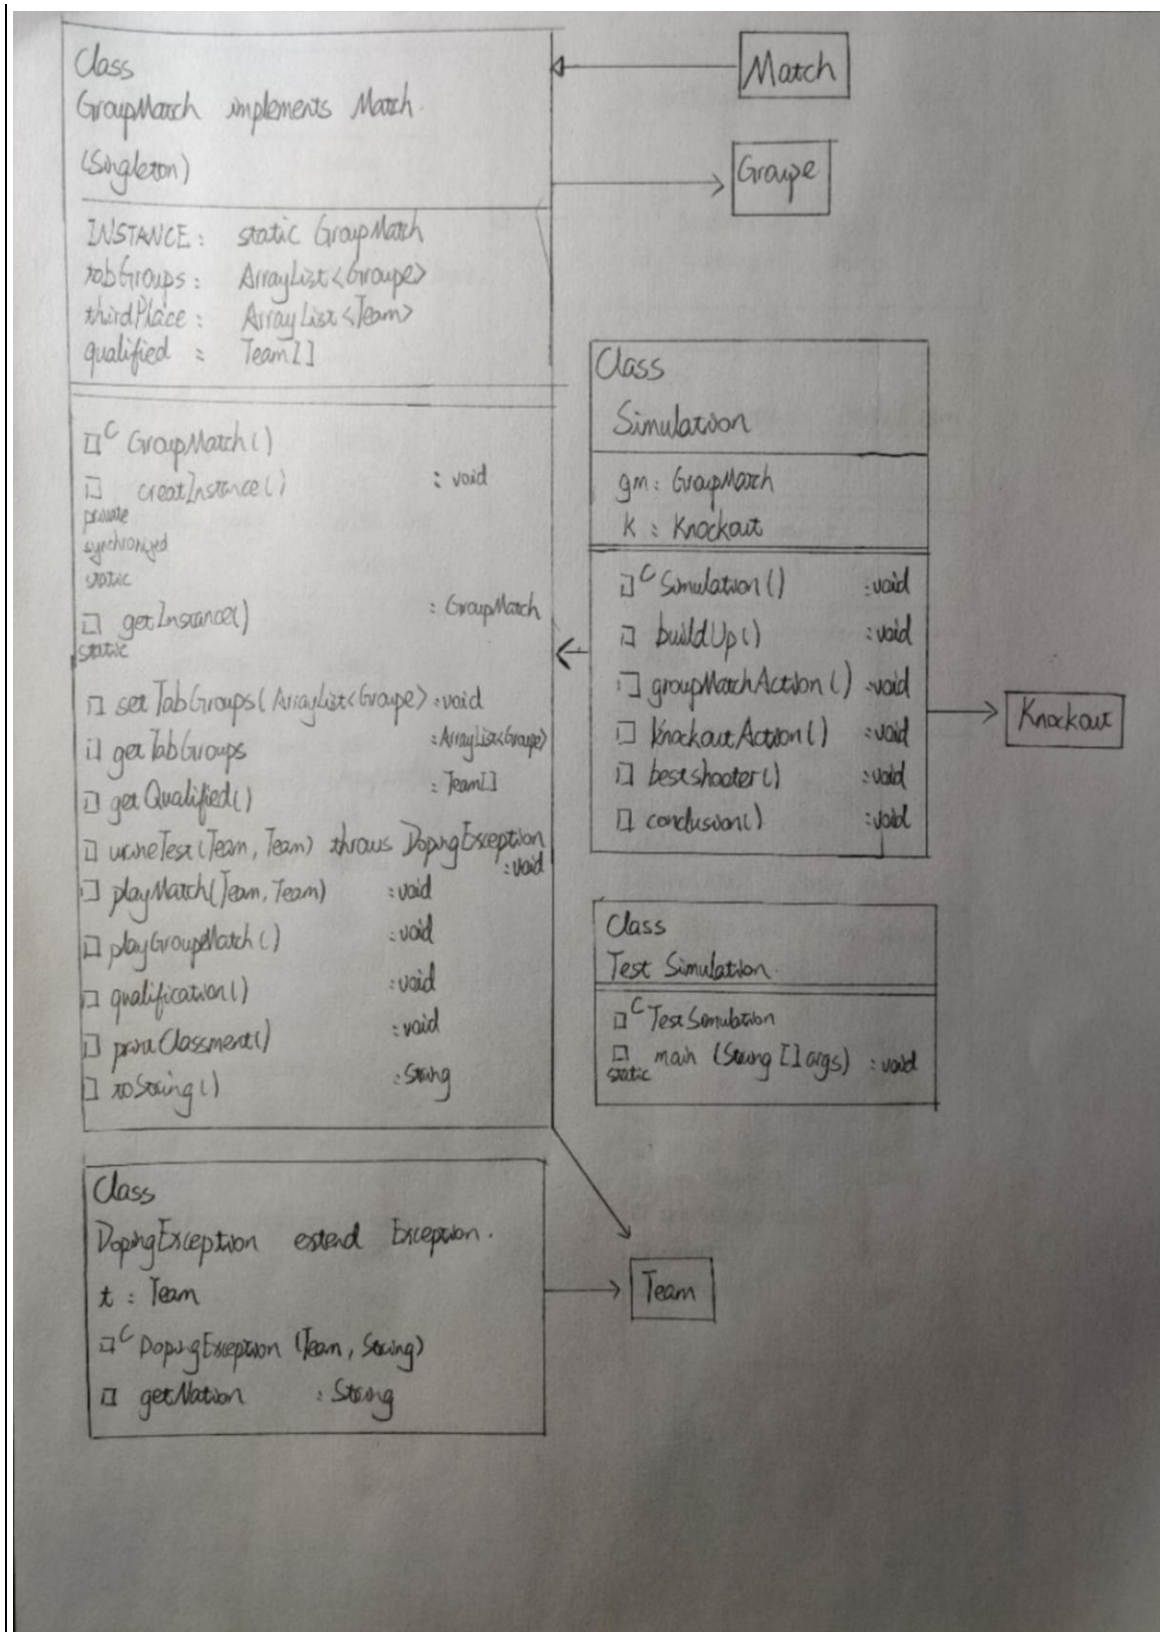 Class
GroupMatch implements Match.
(Singleton)
INSTANCE : static GroupMatch
tabGroups : ArrayList<Groupe>
thirdPlace : ArrayList<Team>
qualified : Team[]
□ᶜ GroupMatch()
□ creatInstance() : void
private
synchronized
static
□ getInstance() : GroupMatch
static
□ setTabGroups(ArrayList<Groupe>) : void
□ getTabGroups : ArrayList<Groupe>
□ getQualified() : Team[]
□ urineTest(Team, Team) throws DopingException
: void
□ playMatch(Team, Team) : void
□ playGroupeMatch() : void
□ qualification() : void
□ printClassment() : void
□ toString() : String
Match
Groupe
Class
Simulation
gm : GroupMatch
k : Knockout
□ᶜ Simulation() : void
□ buildUp() : void
□ groupMatchAction() : void
□ knockoutAction() : void
□ bestshooter() : void
□ conclusion() : void
Knockout
Class
Test Simulation.
□ᶜ TestSimulation
□ main (String [] args) : void
static
Class
DopingException extend Exception.
t : Team
□ᶜ DopingException (Team, String)
□ getNation : String
Team